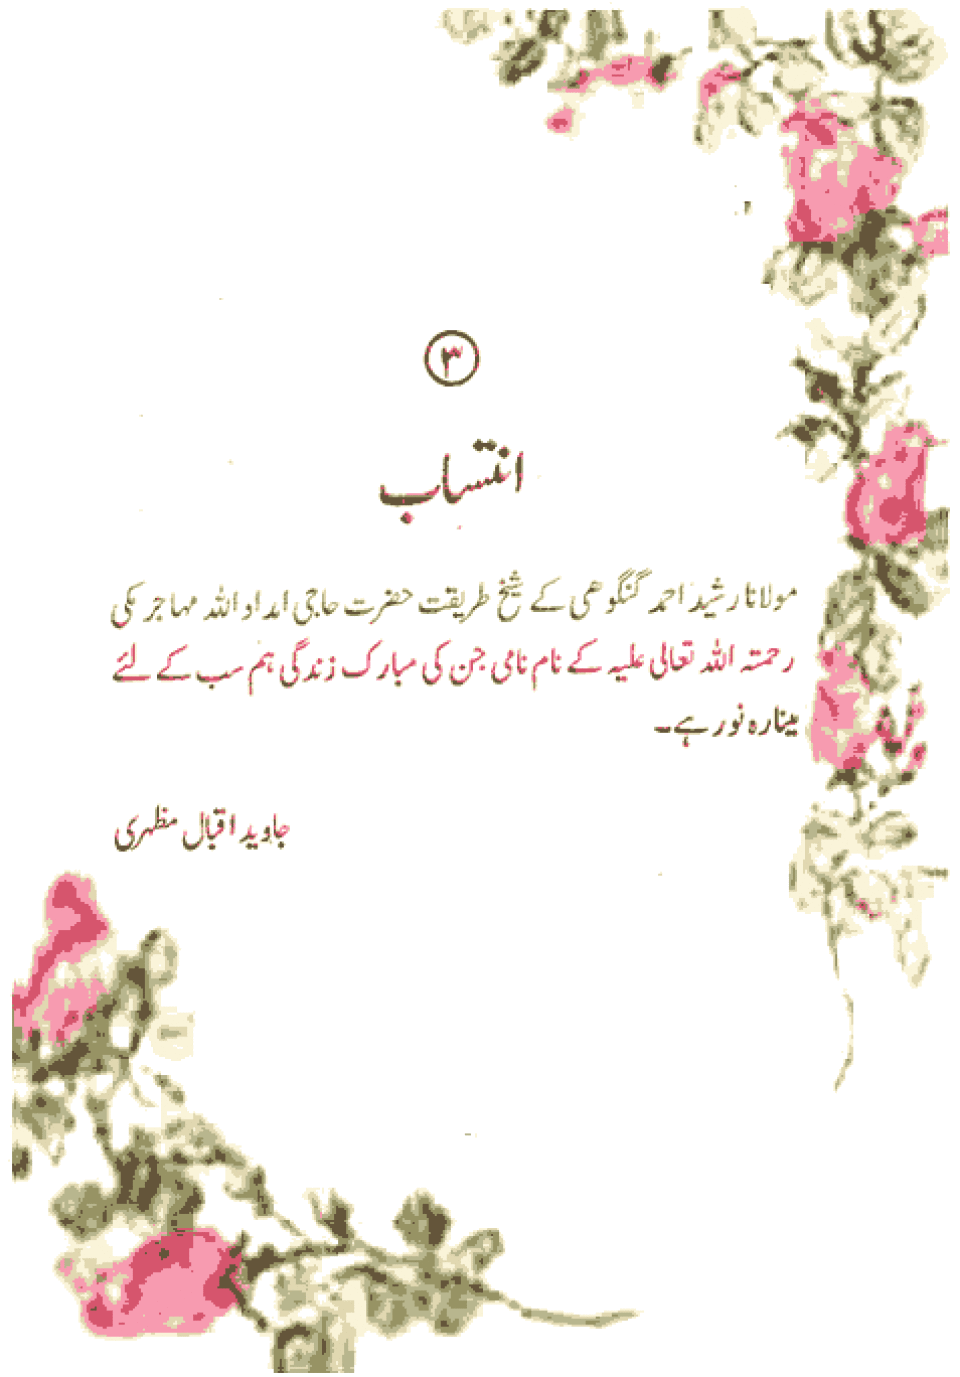 ۳
انتساب
مولانا رشید احمد گنگوھی کے شیخ طریقت حضرت حاجی امداد اللہ مہاجر مکی
رحمتہ اللہ تعالی علیہ کے نام نامی جن کی مبارک زندگی ہم سب کے لئے
مینارہ نور ہے۔
جاوید اقبال مظہری